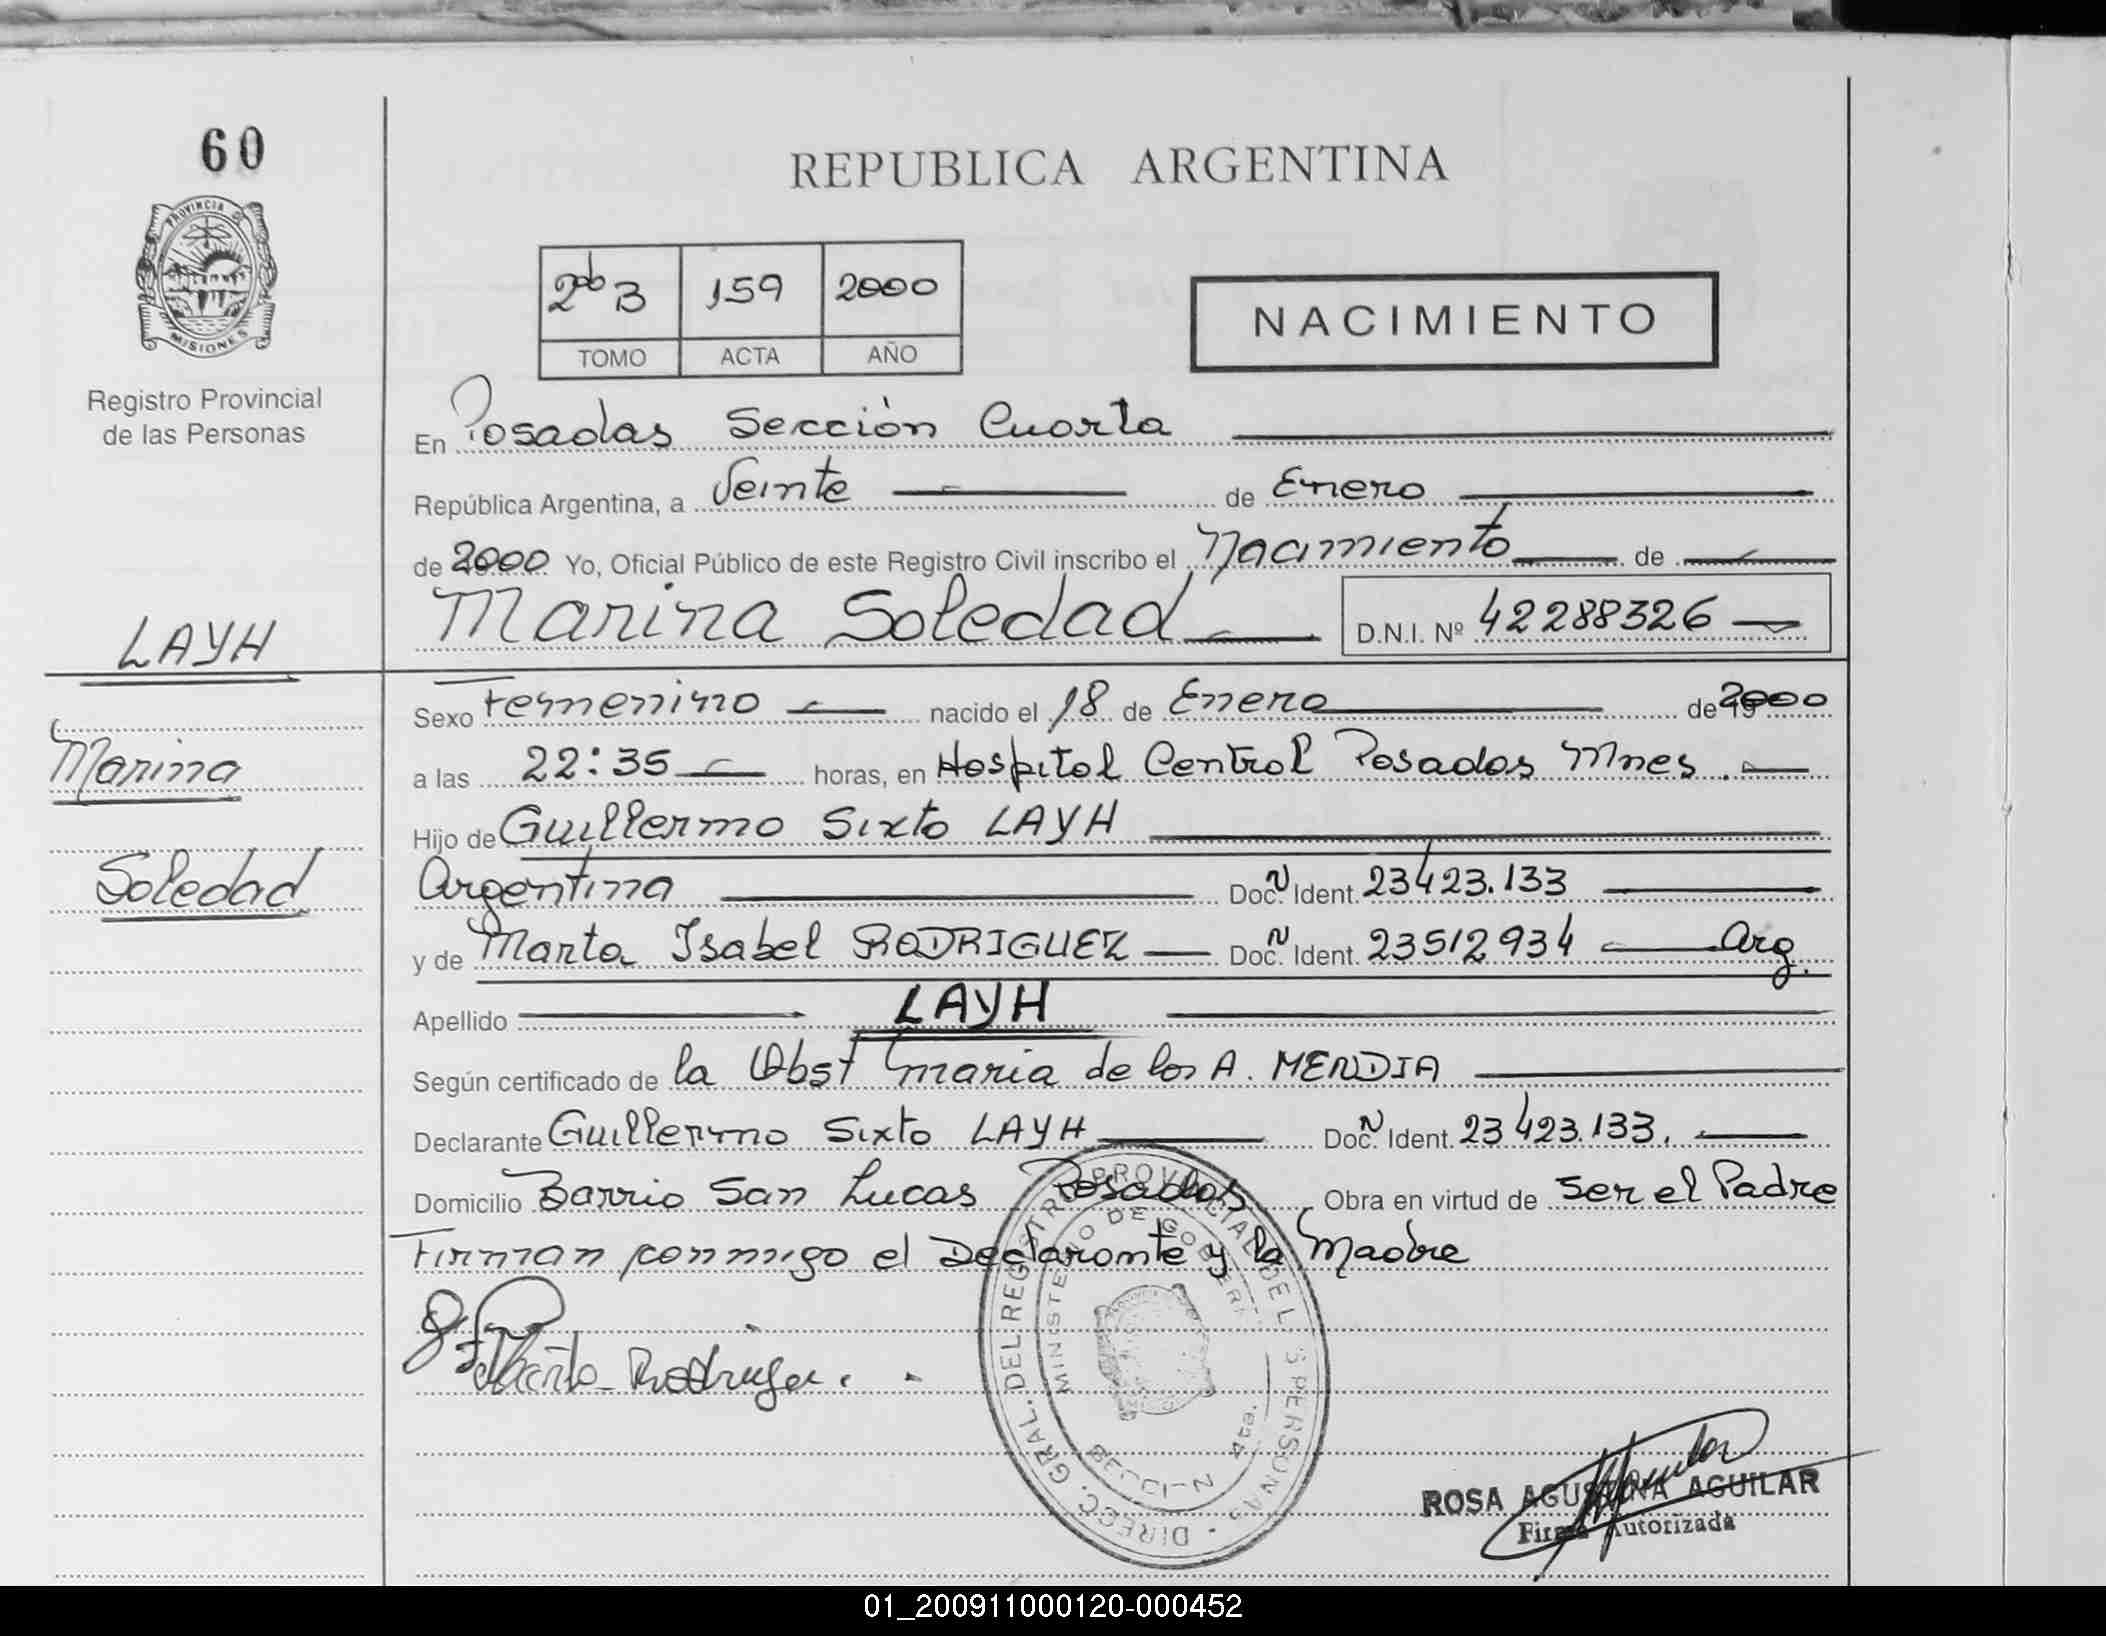 60
PROVINCIA DE
MISIONES
Registro Provincial
de las Personas
LAYH
Marina
Soledad
REPUBLICA ARGENTINA
2do B 159 2000
TOMO ACTA AÑO
NACIMIENTO
En Posadas Sección Cuarta
República Argentina, a Veinte de Enero
de 2000 Yo, Oficial Público de este Registro Civil inscribo el Nacimiento de
Marina Soledad D.N.I. Nº 42288326
Sexo Femenino nacido el 18 de Enero de 2000
a las 22:35 horas, en Hospital Central Posadas Mnes.
Hijo de Guillermo Sixto LAYH
Argentina Doc. N Ident. 23423.133
y de Marta Isabel RODRIGUEZ Doc. N Ident. 23512934 Arg.
Apellido LAYH
Según certificado de la Obst Maria de los A. MENDIA
Declarante Guillermo Sixto LAYH Doc. N Ident. 23423.133.
Domicilio Barrio San Lucas Posadas Obra en virtud de Ser el Padre
Firman conmigo el Declarante y la Madre
Marta Rodriguez.
DIREC. GRAL. DEL REGISTRO PROVINCIAL DE LAS PERSONAS
MINISTERIO DE GOBIERNO
SECCION 4ta.
ROSA AGUSTINA AGUILAR
Firma Autorizada
01_200911000120-000452